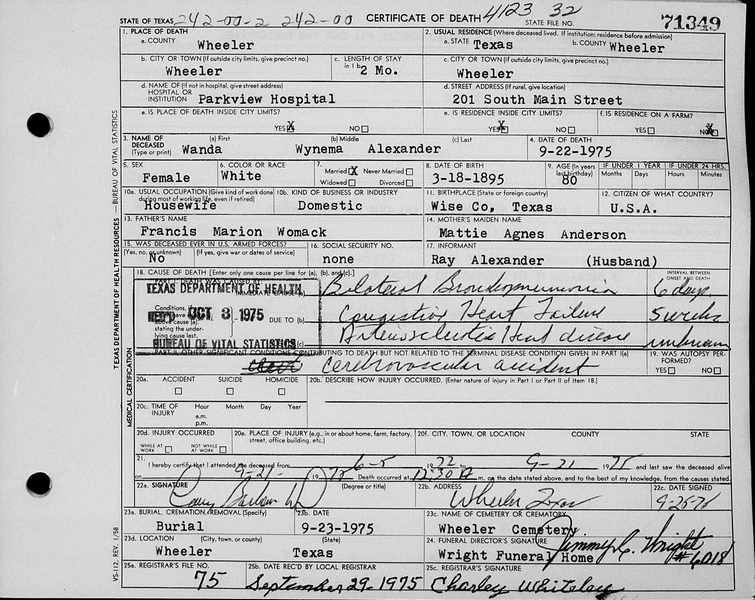 STATE OF TEXAS 242-00-2 242-00 CERTIFICATE OF DEATH 4123 32 STATE FILE NO. 71349
1. PLACE OF DEATH 2. USUAL RESIDENCE (Where deceased lived. If institution: residence before admission)
a. COUNTY Wheeler a. STATE Texas b. COUNTY Wheeler
b. CITY OR TOWN (If outside city limits, give precinct no.) Wheeler c. LENGTH OF STAY in 1 b. 2 Mo. c. CITY OR TOWN (If outside city limits, give precinct no.) Wheeler
d. NAME OF (If not in hospital, give street address) HOSPITAL OR INSTITUTION Parkview Hospital d. STREET ADDRESS (If rural, give location) 201 South Main Street
e. IS PLACE OF DEATH INSIDE CITY LIMITS? YES X NO e. IS RESIDENCE INSIDE CITY LIMITS? YES X NO f. IS RESIDENCE ON A FARM? YES NO X
3. NAME OF DECEASED (Type or print) (a) First Wanda (b) Middle Wynema (c) Last Alexander 4. DATE OF DEATH 9-22-1975
5. SEX Female 6. COLOR OR RACE White 7. Married X Never Married Widowed Divorced 8. DATE OF BIRTH 3-18-1895 9. AGE (In years last birthday) 80 IF UNDER 1 YEAR Months Days IF UNDER 24 HRS. Hours Minutes
10a. USUAL OCCUPATION (Give kind of work done during most of working life, even if retired) Housewife 10b. KIND OF BUSINESS OR INDUSTRY Domestic 11. BIRTHPLACE (State or foreign country) Wise Co, Texas 12. CITIZEN OF WHAT COUNTRY? U.S.A.
13. FATHER'S NAME Francis Marion Womack 14. MOTHER'S MAIDEN NAME Mattie Agnes Anderson
15. WAS DECEASED EVER IN U.S. ARMED FORCES? (Yes, no, or unknown) (If yes, give war or dates of service) No 16. SOCIAL SECURITY NO. none 17. INFORMANT Ray Alexander (Husband)
18. CAUSE OF DEATH [Enter only one cause per line for (a), (b), and (c).] INTERVAL BETWEEN ONSET AND DEATH
TEXAS DEPARTMENT OF HEALTH Bilateral Bronchopneumonia 6 days
REC'D OCT 3 1975 DUE TO (b) Congestive Heart Failure 5 weeks
BUREAU OF VITAL STATISTICS Arteriosclerotic Heart disease unknown
PART II. OTHER SIGNIFICANT CONDITIONS CONTRIBUTING TO DEATH BUT NOT RELATED TO THE TERMINAL DISEASE CONDITION GIVEN IN PART I(a) 19. WAS AUTOPSY PERFORMED? YES NO X
Cerebrovascular accident
20a. ACCIDENT SUICIDE HOMICIDE 20b. DESCRIBE HOW INJURY OCCURRED. (Enter nature of injury in Part I or Part II of Item 18.)
20c. TIME OF INJURY Hour Month Day Year a.m. p.m.
20d. INJURY OCCURRED WHILE AT WORK NOT WHILE AT WORK 20e. PLACE OF INJURY (e.g., in or about home, farm, factory, street, office building, etc.) 20f. CITY, TOWN, OR LOCATION COUNTY STATE
21. I hereby certify that I attended the deceased from 6-5 1972 9-21 1975 and last saw the deceased alive
9-21- 1975 Death occurred at 12:30 A m. on the date stated above, and to the best of my knowledge, from the causes stated.
22a. SIGNATURE (Degree or title) 22b. ADDRESS Wheeler Texas 22c. DATE SIGNED
23a. BURIAL, CREMATION, REMOVAL (Specify) Burial 23b. DATE 9-23-1975 23c. NAME OF CEMETERY OR CREMATORY Wheeler Cemetery
23d. LOCATION (City, town, or county) (State) Wheeler Texas 24. FUNERAL DIRECTOR'S SIGNATURE Wright Funeral Home Jimmy C. Wright #6018
25a. REGISTRAR'S FILE NO. 75 25b. DATE REC'D BY LOCAL REGISTRAR September 29, 1975 25c. REGISTRAR'S SIGNATURE Charley Whiteley
TEXAS DEPARTMENT OF HEALTH RESOURCES — BUREAU OF VITAL STATISTICS
MEDICAL CERTIFICATION
VS-112, REV. 1/58